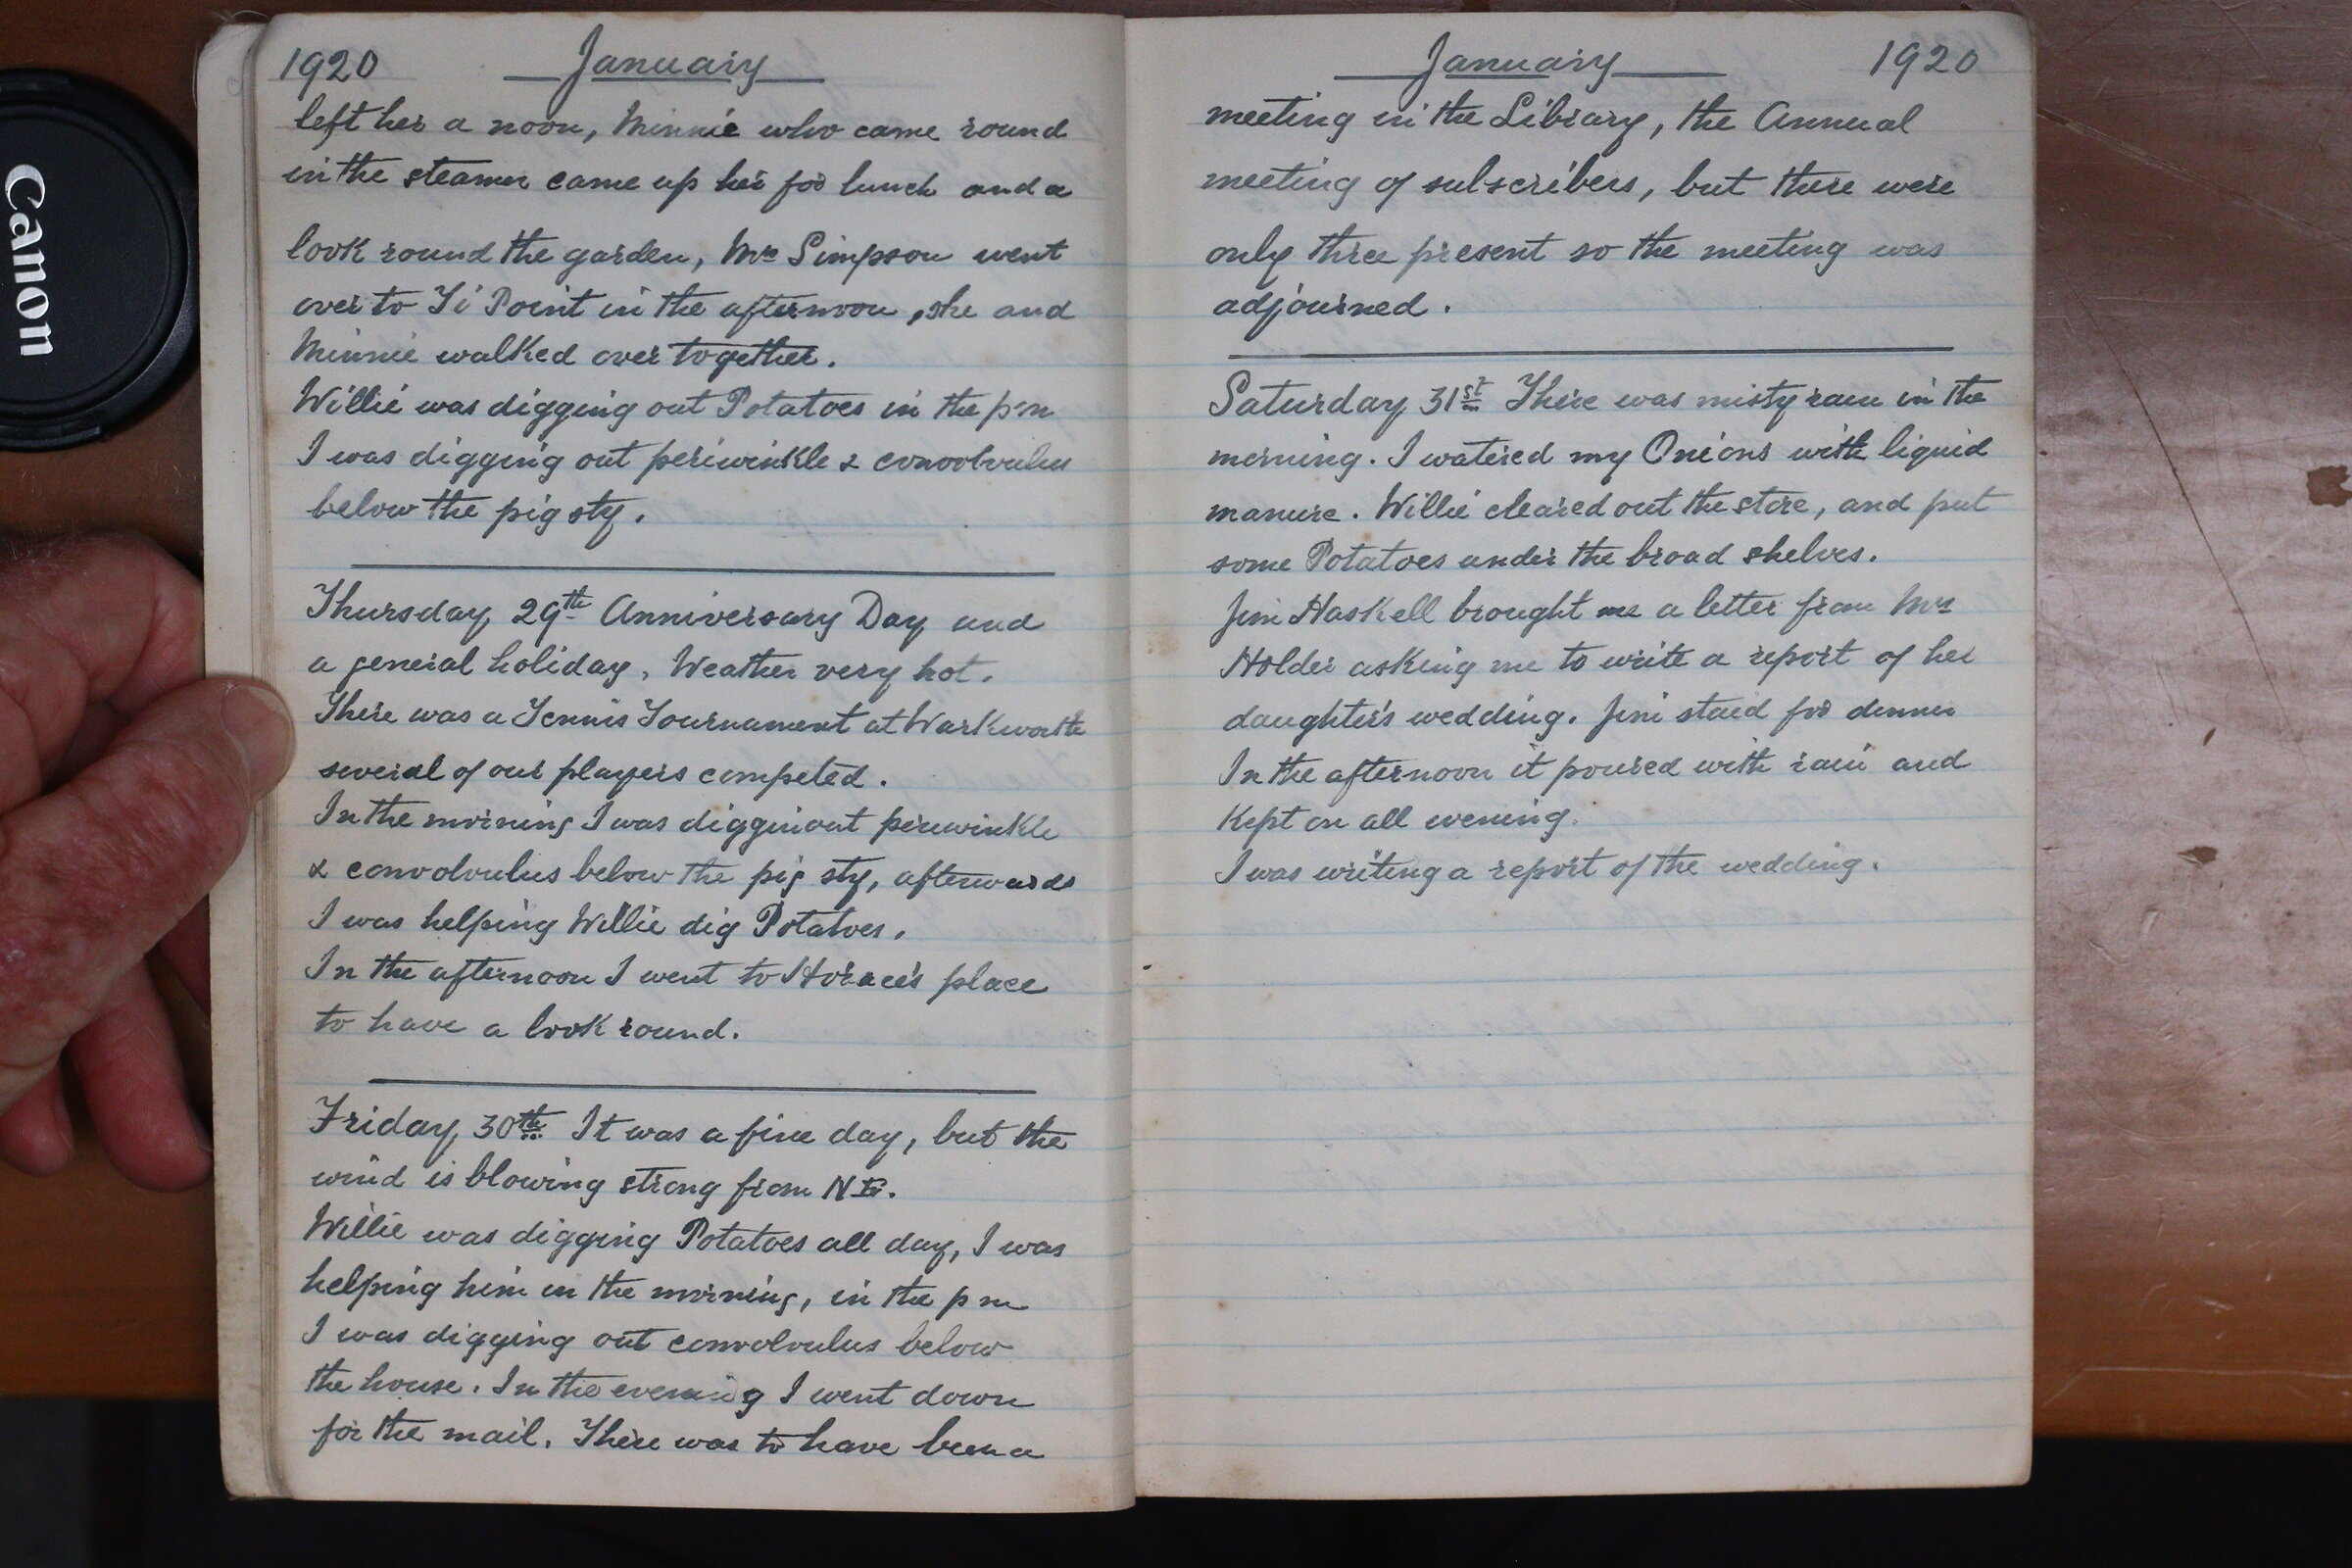 Canon
1920 January
left her a noon, Minnie who came round
in the steamer came up her for lunch and a
look round the garden, Mrs Simpson went
over to Ti Point in the afternoon, she and
Minnie walked over together.
Willie was digging out Potatoes in the pm
I was digging out periwinkle & convolvulus
below the pig sty.
Thursday 29th Anniversary Day and
a general holiday, Weather very hot.
There was a Tennis Tournament at Warkworth
several of our players competed.
In the morning I was diggin out periwinkle
& convolvulus below the pig sty, afterwards
I was helping Willie dig Potatoes.
In the afternoon I went to Horace's place
to have a look round.
Friday 30th It was a fine day, but the
wind is blowing strong from NE.
Willie was digging Potatoes all day, I was
helping him in the morning, in the pm
I was digging out convolvulus below
the house. In the evening I went down
for the mail. There was to have been a
January 1920
meeting in the Library, the Annual
meeting of subscribers, but there were
only three present so the meeting was
adjourned.
Saturday 31st There was misty rain in the
morning. I watered my Onions with liquid
manure. Willie cleared out the store, and put
some Potatoes under the broad shelves.
Jim Haskell brought me a letter from Mrs
Holder asking me to write a report of her
daughter's wedding. Jim staid for dinner
In the afternoon it poured with rain and
Kept on all evening.
I was writing a report of the wedding.